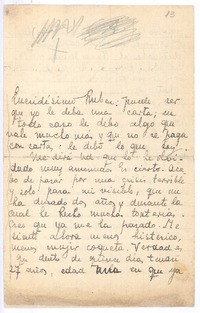 13
Queridísimo Rubén: puede ser
que yo le deba una carta; en
todo caso le debo algo que
vale mucho más y que no se paga
con carta: le debo lo que soy.
Me dirá Ud. que lo he olvi-
dado muy anunciado. Es cierto. Aca-
bo de pasar por una crisis terrible
y solo para mí visible, que me
ha durado dos años y durante la
cual he hecho muchas tonterías.
Creo que ya me ha pasado. Me
siento ahora menos histérico,
menos mujer coqueta. Verdad es
que dentro de
27 años, edad en que ya